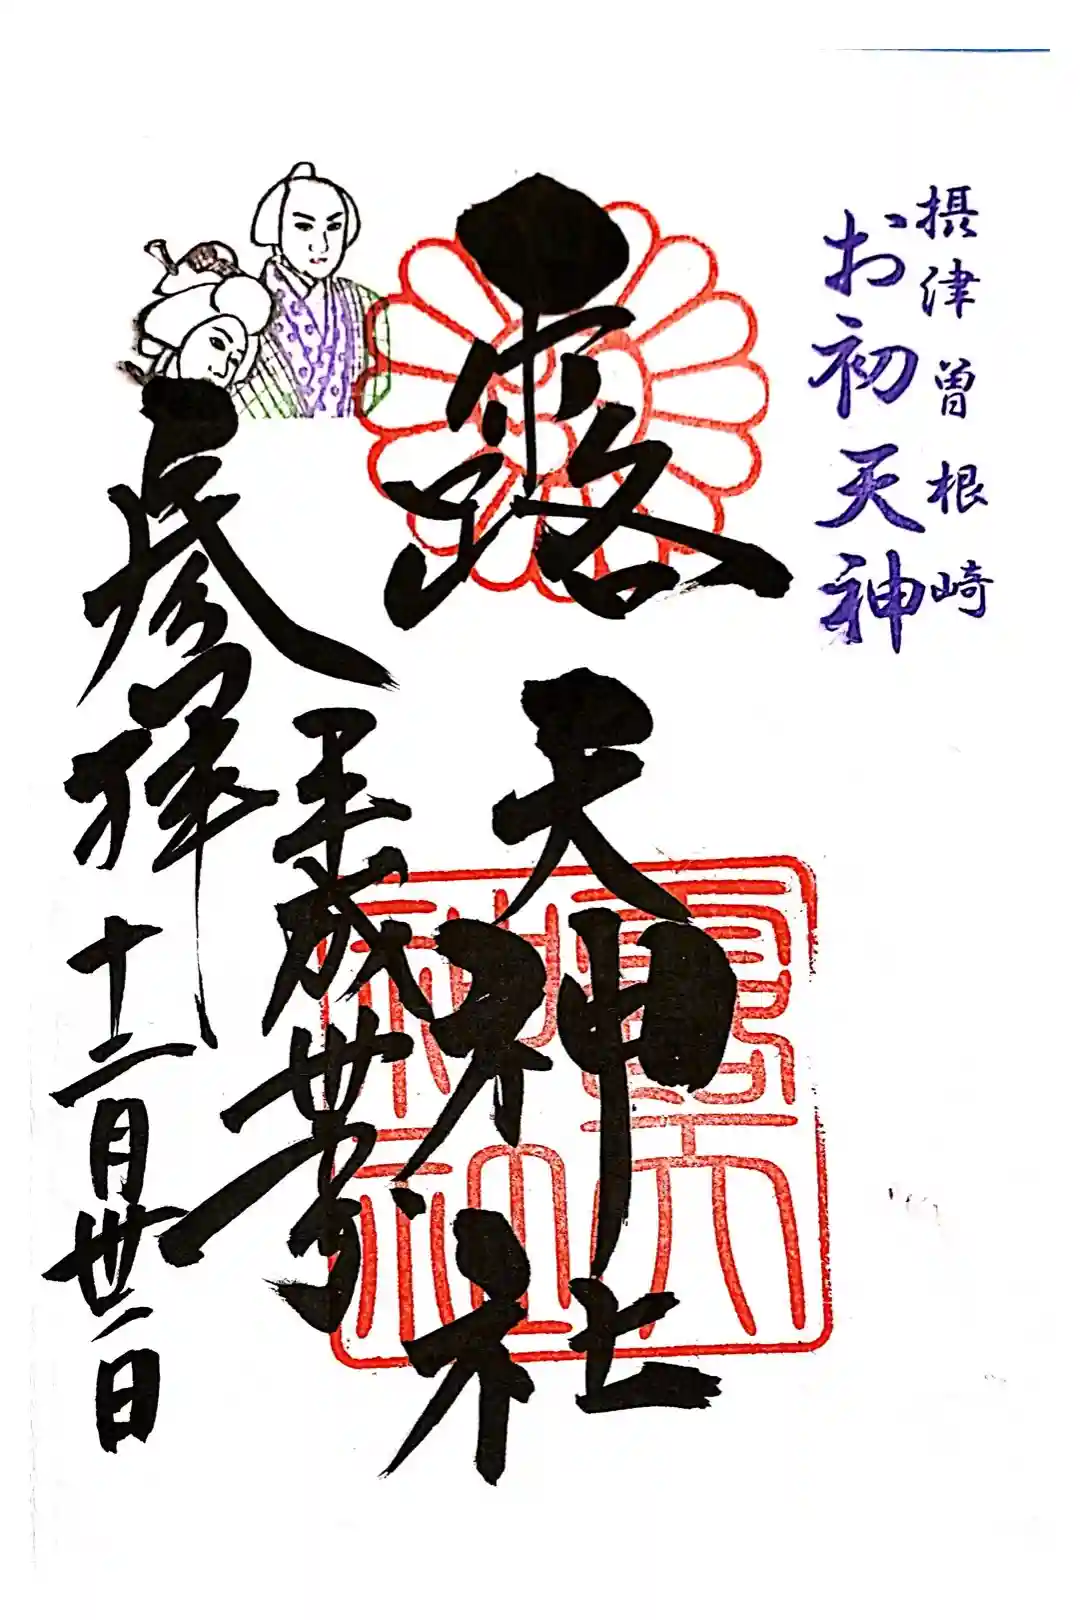 摂津曽根崎
お初天神
露天神社
露天
神社
平成丗年
参拝
十二月丗一日